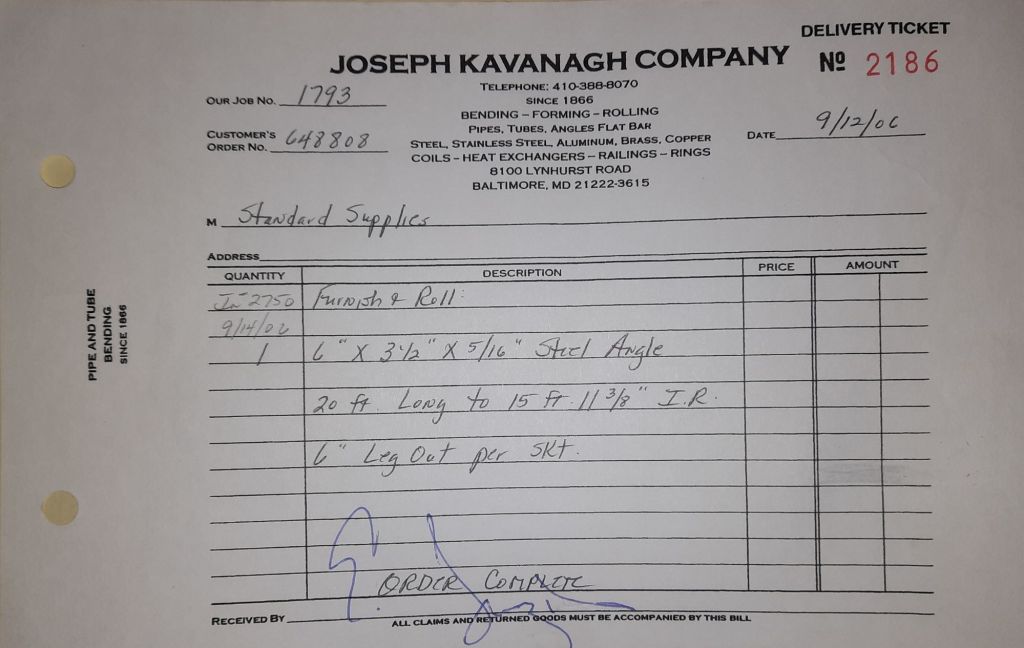 DELIVERY TICKET
JOSEPH KAVANAGH COMPANY
Nº 2186
TELEPHONE: 410-388-8070
SINCE 1866
BENDING – FORMING – ROLLING
PIPES, TUBES, ANGLES FLAT BAR
STEEL, STAINLESS STEEL, ALUMINUM, BRASS, COPPER
COILS – HEAT EXCHANGERS – RAILINGS – RINGS
8100 LYNHURST ROAD
BALTIMORE, MD 21222-3615
OUR JOB NO. 1793
CUSTOMER'S ORDER NO. 648808
DATE 9/12/06
M Standard Supplies
ADDRESS
QUANTITY DESCRIPTION PRICE AMOUNT
In 2750 Furnish & Roll:
9/14/06
1 6" X 3 1/2" X 5/16" Steel Angle
20 ft Long to 15 ft. 11 3/8" I.R.
6" Leg Out per SKT.
ORDER COMPLETE
RECEIVED BY
ALL CLAIMS AND RETURNED GOODS MUST BE ACCOMPANIED BY THIS BILL
PIPE AND TUBE
BENDING
SINCE 1866